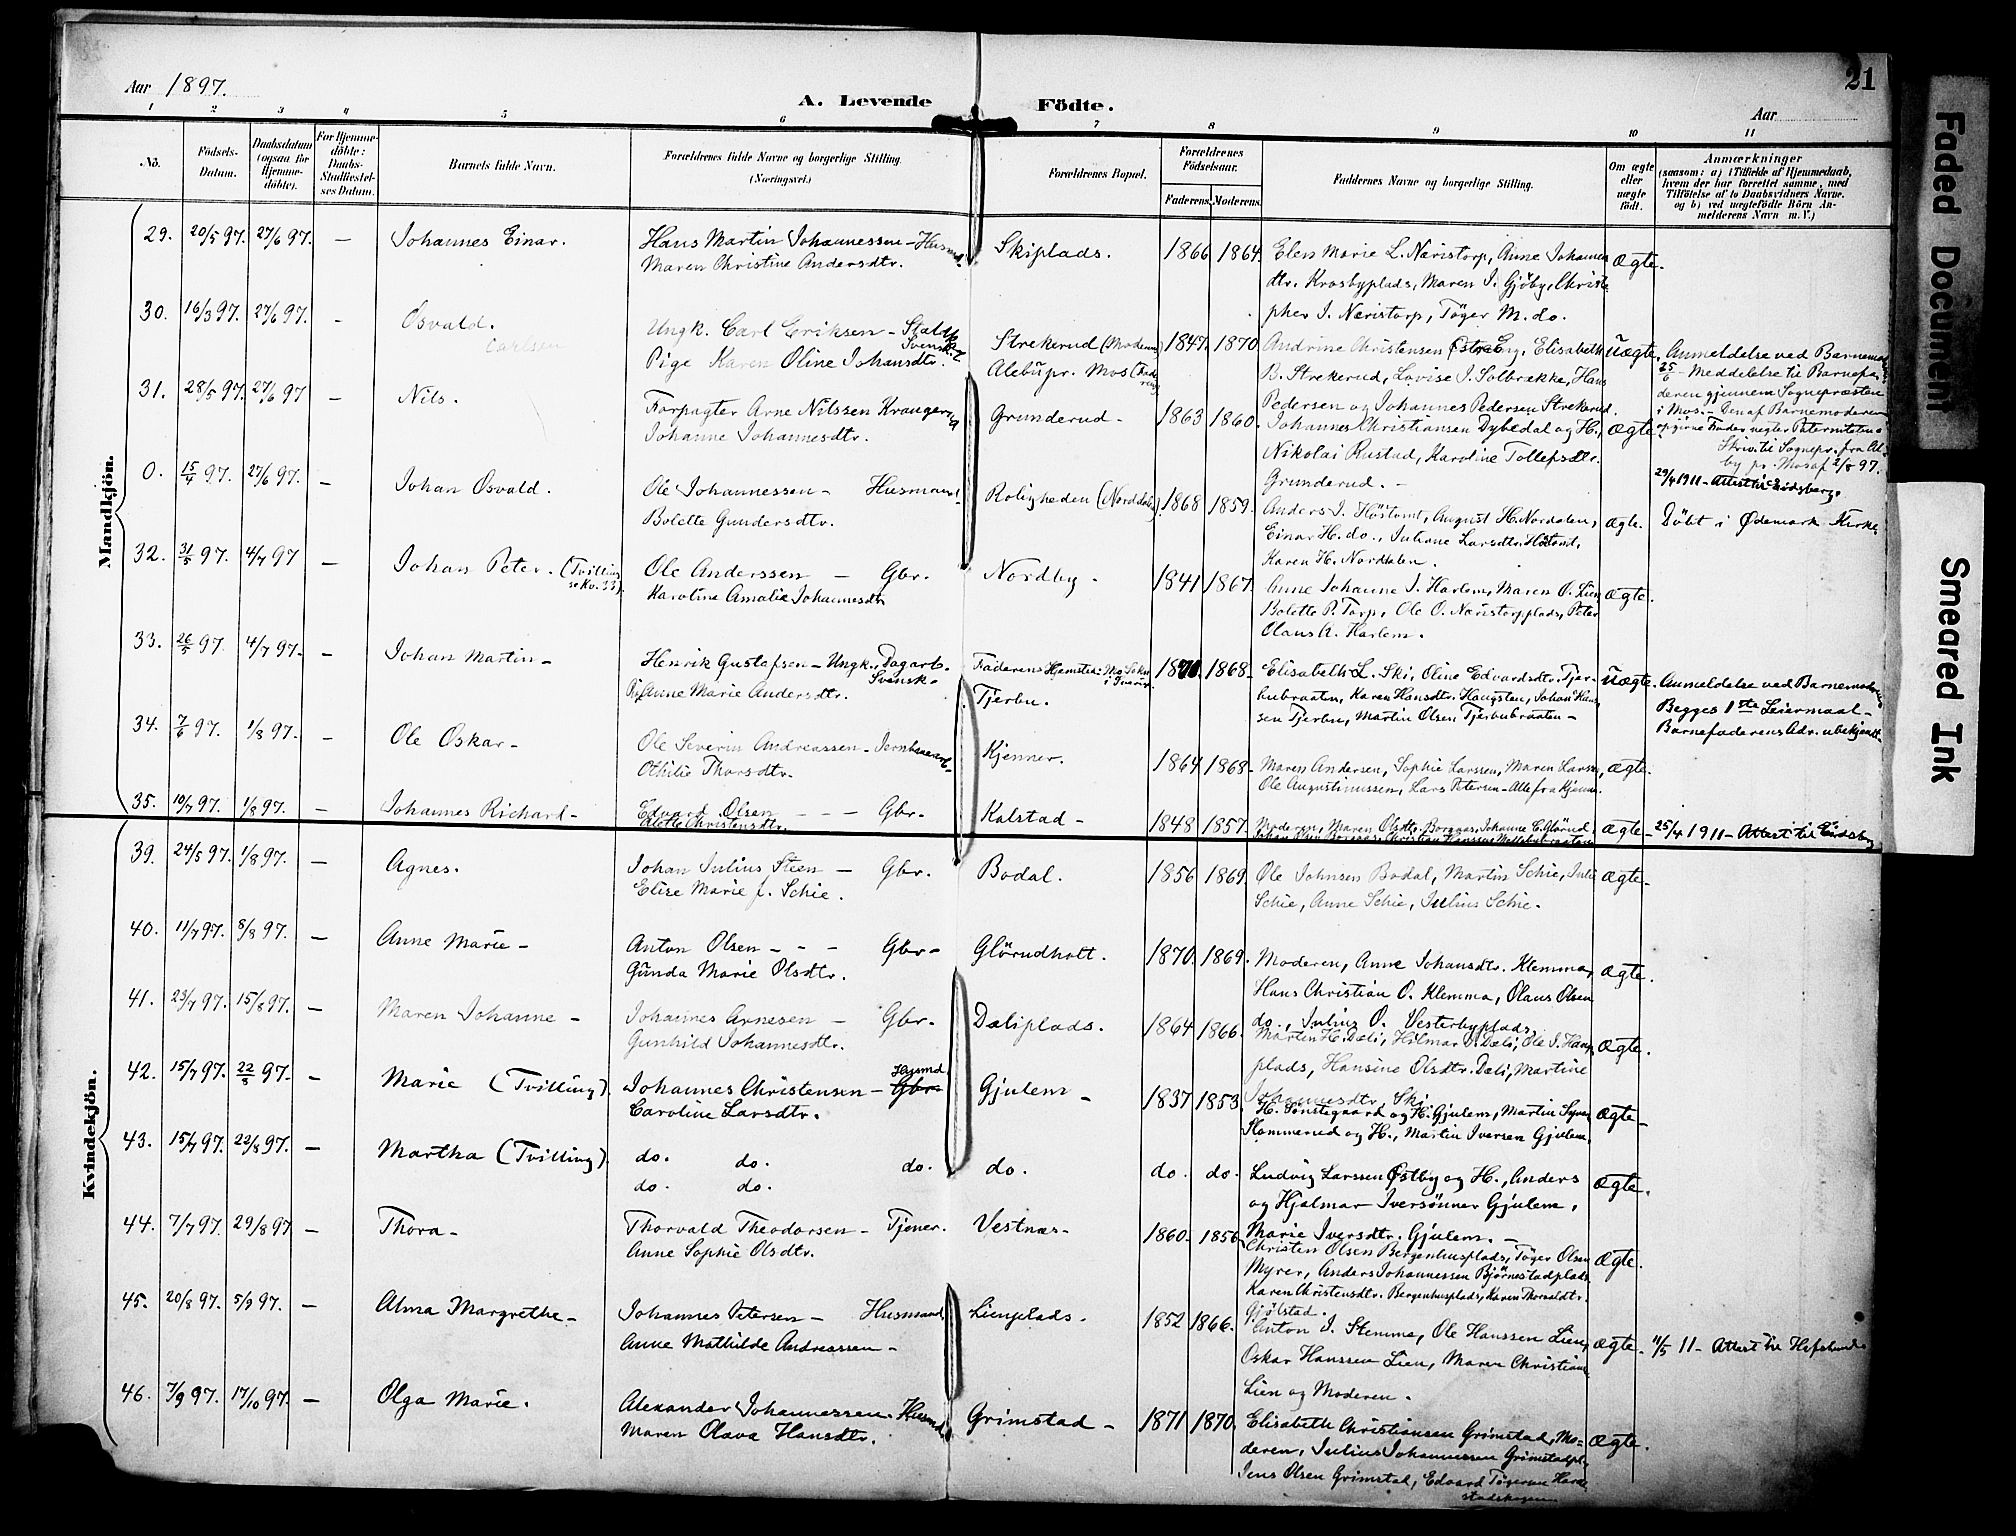 21
Aar 1897.
A. Levende Födte.
Aar
1 2 3 4 5 6 7 8 9 10 11
No.
Födsels-Datum.
Daabsdatum (ogsaa for Hjemme-döbte).
For Hjemme-döbte: Daabs-Stadfæstel-ses Datum.
Barnets fulde Navn.
Forældrenes fulde Navne og borgerlige Stilling.
(Næringsvei.)
Forældrenes Bopæl.
Forældrenes Födselsaar.
Faderens. Moderens.
Faddernes Navne og borgerlige Stilling.
Om ægte eller uægte födt.
Anmærkninger
(saasom: a) i Tilfælde af Hjemmedaab,
hvem der har forrettet samme, med
Tilföielse af to Daabsvidners Navne.
og b) ved uægtefödte Börn An-
melderens Navn m. V.)
Mandkjön.
29. 20/5 97. 27/6 97. – Johannes Einar. Hans Martin Johannessen – Husmd. Skiplads. 1866 1864. Elen Marie L. Næristorp, Anne Johannes Ægte.
Maren Christine Andersdtr. dtr. Krosbyplads, Maren I. Gjöby, Christo
pher I. Næristorp, Töger M. do.
30. 16/3 97. 27/6 97. – Osvald. Ungk. Carl Eriksen – Svensk. Strekerud (Moderen) 1847. 1870. Andrine Christensen Østre Eng, Elisabeth Uægte. Anmeldelse ved Barnemod
Carlsen Pige Karen Oline Johansdtr. Alebü pr. Mos B. Strekerud, Lovise I. Solbrække, Hans 25/6 – Meddelelse til Barnefa-
Pedersen og Johannes Pedersen Strekerud. deren gjennem Sognepræsten
i Mos. – Den af Barnemoderen
opgivne Fader negter Paterniteten
Skriv. til Sognepr. fra Al-
by pr. Mos af 2/8 97.
31. 28/5 97. 27/6 97 – Nils. Forpagter Arne Nilssen Grunderud – 1863 1860. Johannes Christiansen Dybedal og H., Ægte
Johanne Johannesdtr. Nikolai Rustad, Karoline Tollefsdtr.
Grunderud. – 29/4 1911 – Attest til Eidsberg.
0. 15/4 97. 27/6 97. – Johan Osvald. Ole Johannessen – Husmand. Roligheden (Norddalen) 1868 1859. Anders I. Höstomt, August H. Nordalen, Ægte. Döbt i Ødemark Kirke.
Bolette Gundersdtr. Einar H. do., Juliane Larsdtr. Höstomt,
Karen H. Norddalen.
32. 31/5 97. 4/7 97 – Johan Peter. (Tvilling se Kv. 33). Ole Anderssen – Gbr. Nordby. 1841 1867. Anne Johanne I. Harlem, Maren O. Lien Ægte.
Karoline Amalie Johannesdtr Bolette P. Torp, Ole O. Næristorpplads, Peter
Olaus A. Harlem.
33. 26/5 97. 4/7 97. – Johan Martin – Henrik Gustafsen – Ungk., Dagarb. Svensk. Faderens Hjemsted: Mo Sokn i Sverig. 1870. 1868. Elisabeth L. Ski, Oline Edvardsdtr. Tjer- Uægte. Anmeldelse ved Barnemoderen
Pi. Anne Marie Andersdtr. Tjerbu. bubraaten, Karen Hansdtr. Haugsten, Johan Han- Begges 1ste Leiermaal –
sen Tjerbu, Martin Olsen Tjerbubraaten – Barnefaderens Adr. ubekjendt.
34. 7/6 97. 1/8 97. – Ole Oskar – Ole Severin Andreassen – Kjenner. 1864 1868 – Maren Andersen, Sophie Larssen, Maren Larsen, Ægte.
Othilie Thorsdtr. Ole Augustinussen, Lars Petersen – Alle fra Kjenner.
35. 10/7 97. 1/8 97. – Johannes Richard – Edvard Olsen – – – Gbr. Kalstad – 1848 1857. Moderen, Maren Olsdtr. Johanne E. Glörud, Ægte – 25/4 1911 – Attest til Eidsberg
Christensdtr.
Kvindekjön.
39. 24/5 97. 1/8 97. – Agnes. Johan Julius Steen – Gbr. Bodal. 1856 1869. Ole Johnsen Bodal, Martin Schie, Julie Ægte –
Elise Marie f. Schie. Schie, Anne Schie, Julius Schie.
40. 11/7 97. 8/8 97. – Anne Marie – Anton Olsen – – – Gbr – Glörudholt. 1870. 1869. Moderen, Anne Johansdtr. Klemma, Ægte.
Gunda Marie Olsdtr. Hans Christian O. Klemma, Olaus Olsen
do., Julius O. Vesterbyplads.
41. 23/7 97. 15/8 97. – Maren Johanne – Johannes Arnesen – Gbr. Dæliplads. 1864 1866. Martin H. Dæli, Hilmar O. Dæli, Ole I. Haug Ægte.
Gunhild Johannesdtr. plads, Hansine Olsdtr. Dæli, Martine
Johannesdtr. Ski
42. 15/7 97. 22/8 97. – Marie (Tvilling). Johannes Christensen – Gbr. Husmd Gjulem – 1837 1853. H. Sönstegaard og H. Gjulem, Martin Syver Ægte –
Caroline Larsdtr. Slommerud og H., Martin Iversen Gjulem.
43. 15/7 97. 22/8 97. – Martha (Tvilling). do. do. do. do. do. do. Ludvig Larssen Østby og H., Anders Ægte.
do. do. og Hjalmar Iversönner Gjulem,
Marie Iversdtr. Gjulem. –
44. 7/7 97. 29/8 97 – Thora – Thorvald Theodorsen – Tjener. Vestnæs – 1860. 1856 Christen Olsen Bergenhusplads, Töger Olsen Ægte.
Anne Sophie Olsdtr. Myrer, Anders Johannessen Björnestadplads
Karen Christensdtr. Bergenhusplads, Karen Thorvaldtr.
Gjölstad.
45. 20/8 97. 5/9 97. – Alma Margrethe – Johannes Petersen – Husmand Lienplads. 1852 1866. Anton I. Stemme, Ole Hanssen Lien, Ægte. 11/5 11 – Attest til
Anne Mathilde Andreassen – Oskar Hanssen Lien, Maren Christians
Lien og Moderen.
46. 7/9 97. 17/10 97. – Olga Marie. Alexander Johannessen. Husmd. Grimstad – 1871 1870. Elisabeth Christiansen Grimstad, Mo- Ægte.
Maren Olava Hansdtr. deren, Julius Johannessen Grimstadpl.
Jens Olsen Grimstad, Edvard Tögersen
Faded Document
Smeared Ink